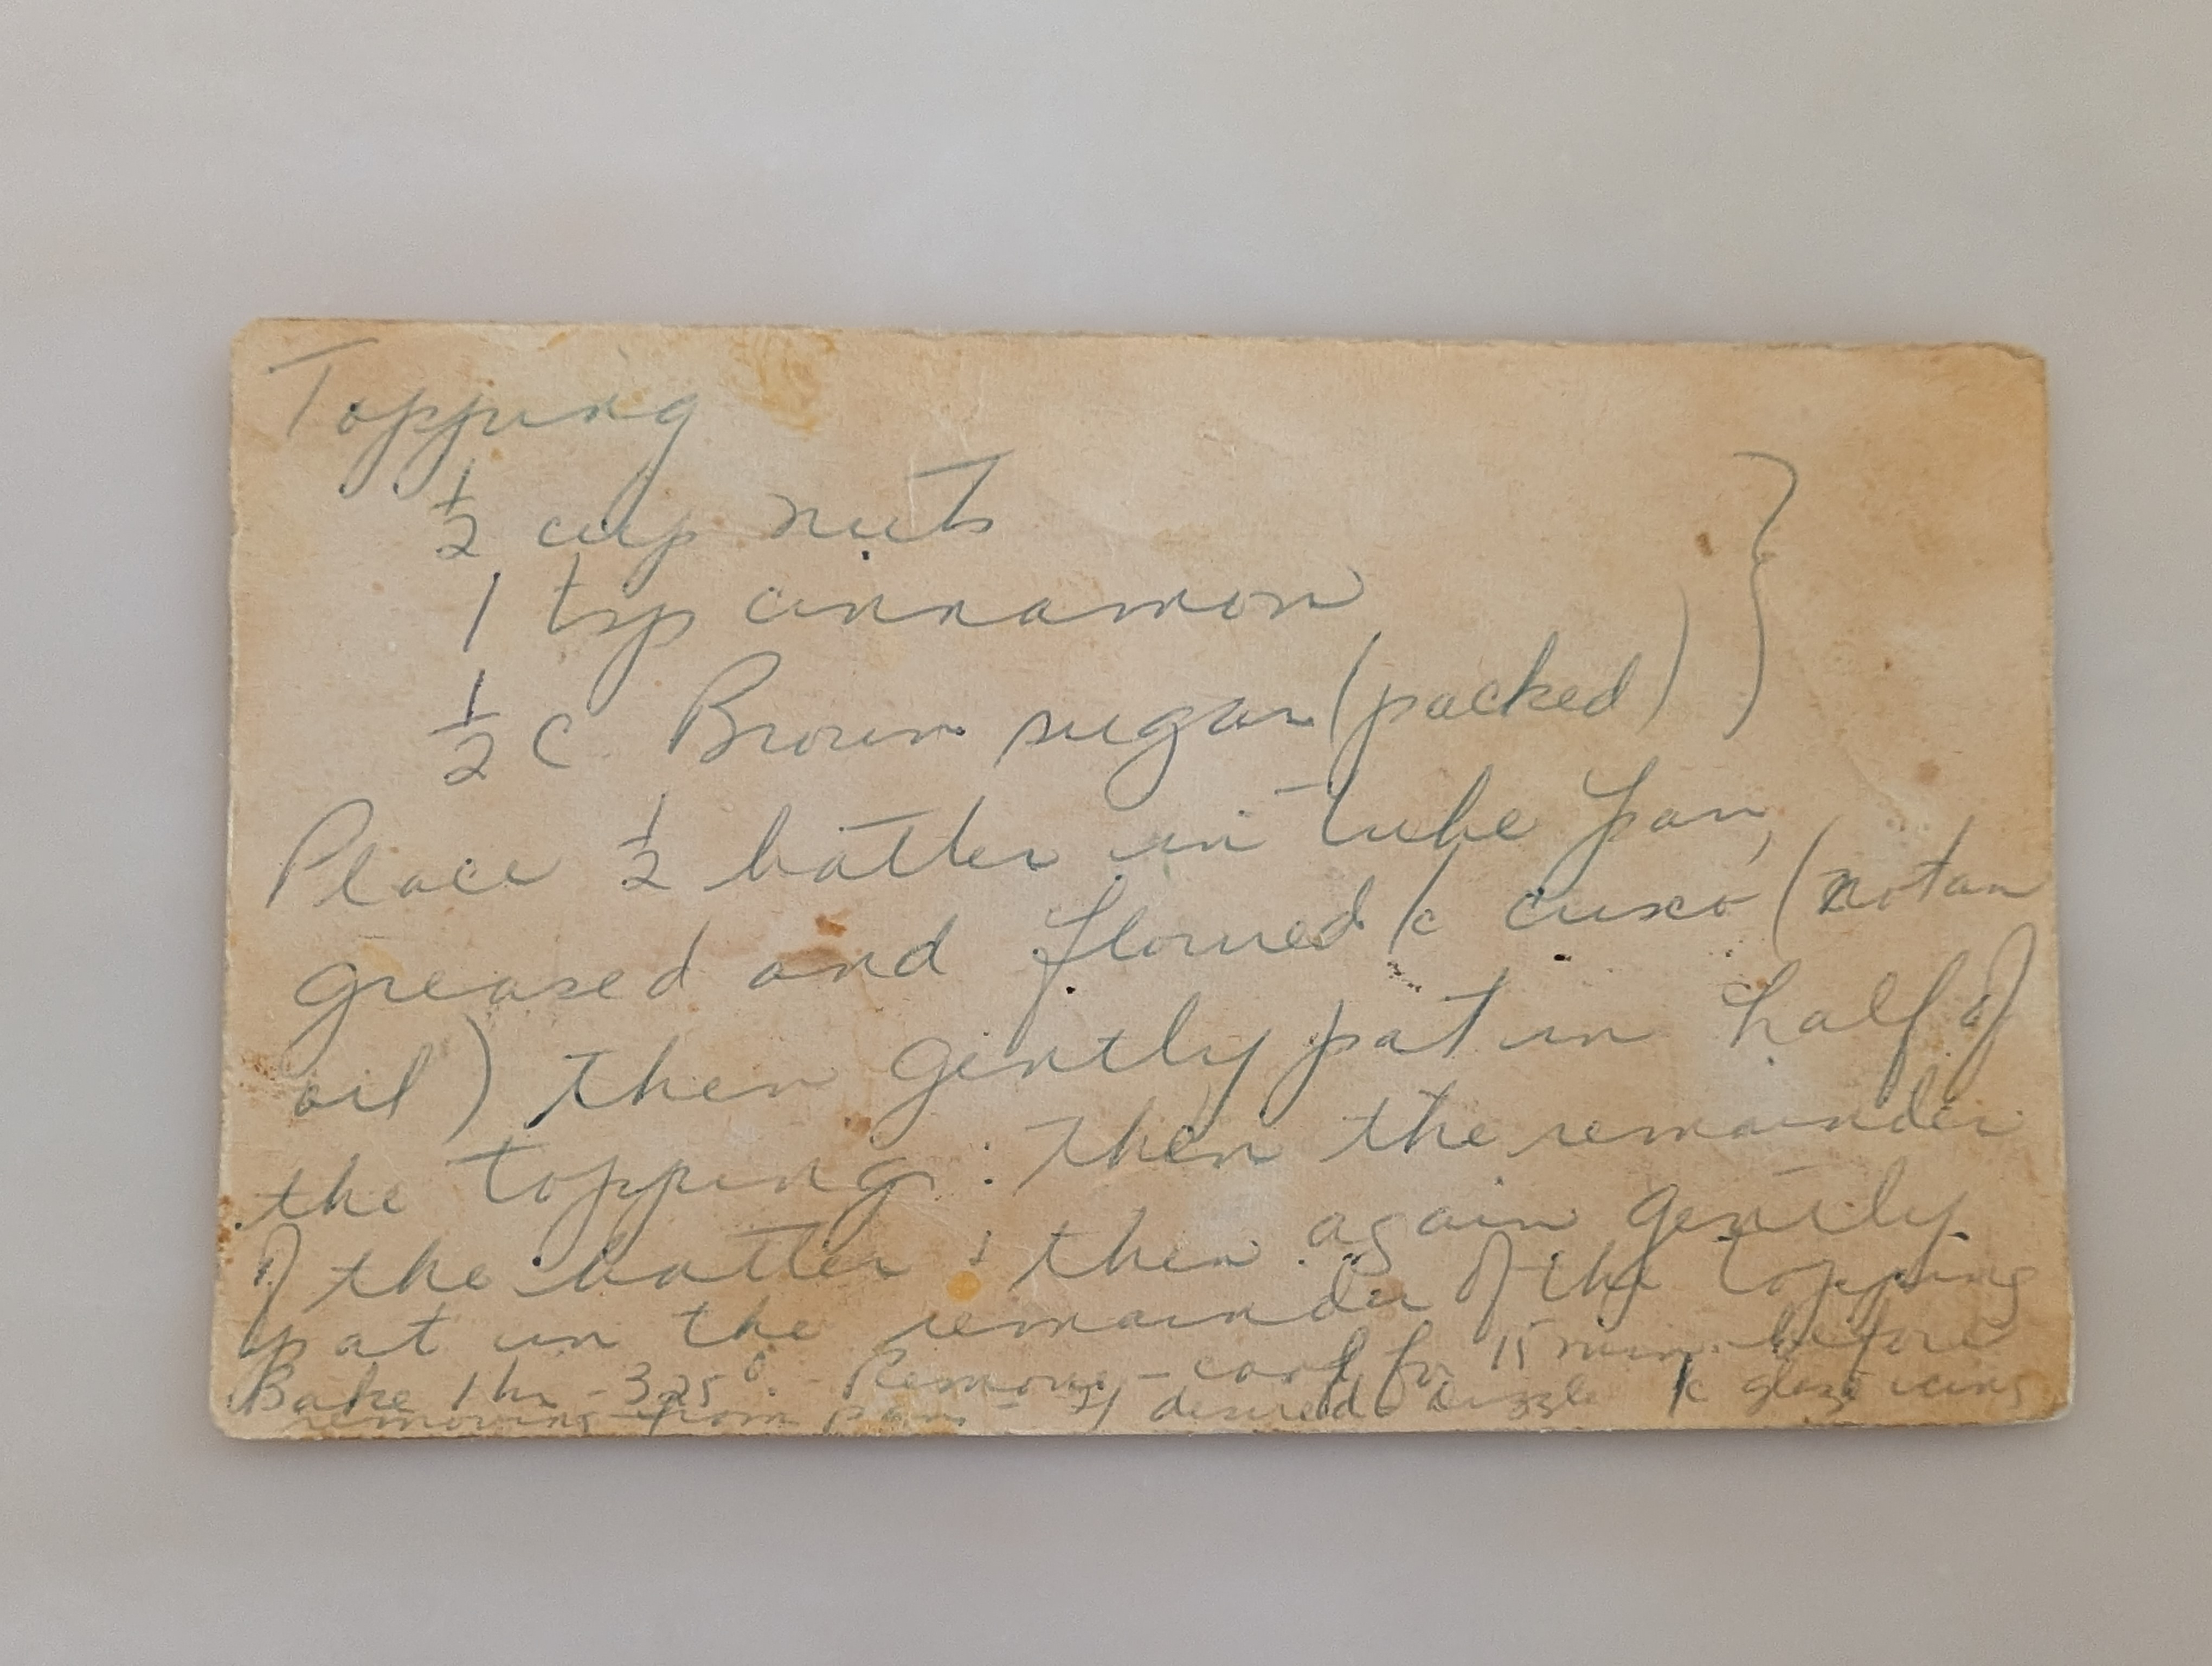 Topping
1/2 cup nuts
1 tsp cinnamon
1/2 c Brown sugar (packed) }
Place 1/2 batter in tube pan,
greased and floured /c crisco (not an
oil) then gently pat in half of
the topping: then the remainder
of the batter; then again gently
pat in the remainder of the topping
Bake 1 hr - 325°. Remove - cool for 15 min. before
removing from pan - If desired drizzle /c glaze icing